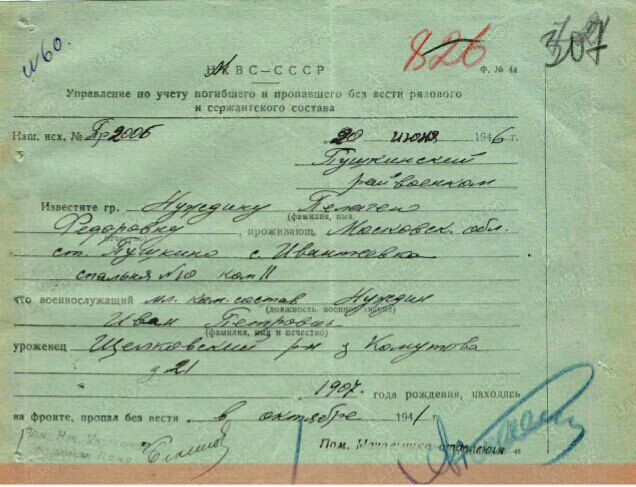 №60.
826
307
МВС—СССР
Ф. № 4а
Управление по учету погибшего и пропавшего без вести рядового
и сержантского состава
Наш. исх. № Пр2006
20 июня 1946 г.
Пушкинский
райвоенком
Известите гр. Нуждину Пелагею
(фамилия, имя,
Федоровну, проживающ. Московск. обл.
ст. Пушкино с. Ивантеевка
спальня №10 ком 11
что военнослужащий мл. ком. состав Нуждин
(должность, военное звание)
Иван Петрович
(фамилия, имя и отчество)
уроженец Щелковский р-н д Комутова
д 21
1907 года рождения, находясь
на фронте, пропал без вести в октябре 1941
Пом. Начальника отделения